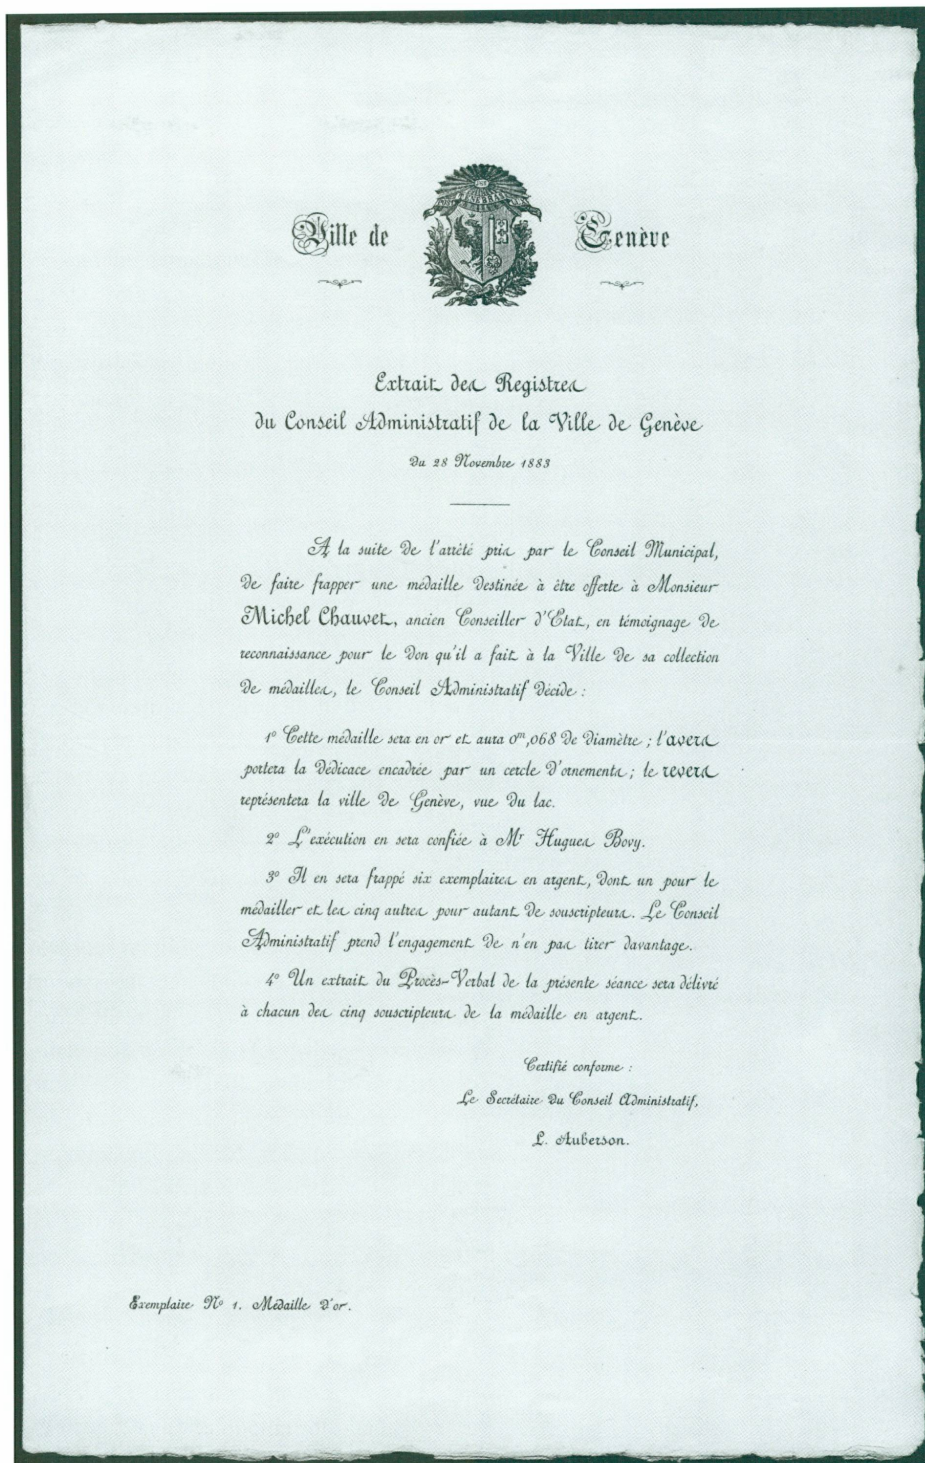 Ville de Genève
Extrait des Registres
du Conseil Administratif de la Ville de Genève
Du 28 Novembre 1883
A la suite de l'arrêté pris par le Conseil Municipal,
de faire frapper une médaille destinée à être offerte à Monsieur
Michel Chauvet, ancien Conseiller d'Etat, en témoignage de
reconnaissance pour le don qu'il a fait à la Ville de sa collection
de médailles, le Conseil Administratif décide :
1º Cette médaille sera en or et aura 0m,068 de diamètre ; l'avers
portera la dédicace encadrée par un cercle d'ornements ; le revers
représentera la ville de Genève, vue du lac.
2º L'exécution en sera confiée à Mr Hugues Bovy.
3º Il en sera frappé six exemplaires en argent, dont un pour le
médailler et les cinq autres pour autant de souscripteurs. Le Conseil
Administratif prend l'engagement de n'en pas tirer davantage.
4º Un extrait du Procès-Verbal de la présente séance sera délivré
à chacun des cinq souscripteurs de la médaille en argent.
Certifié conforme :
Le Secrétaire du Conseil Administratif,
L. Auberson.
Exemplaire Nº 1. Médaille d'or.